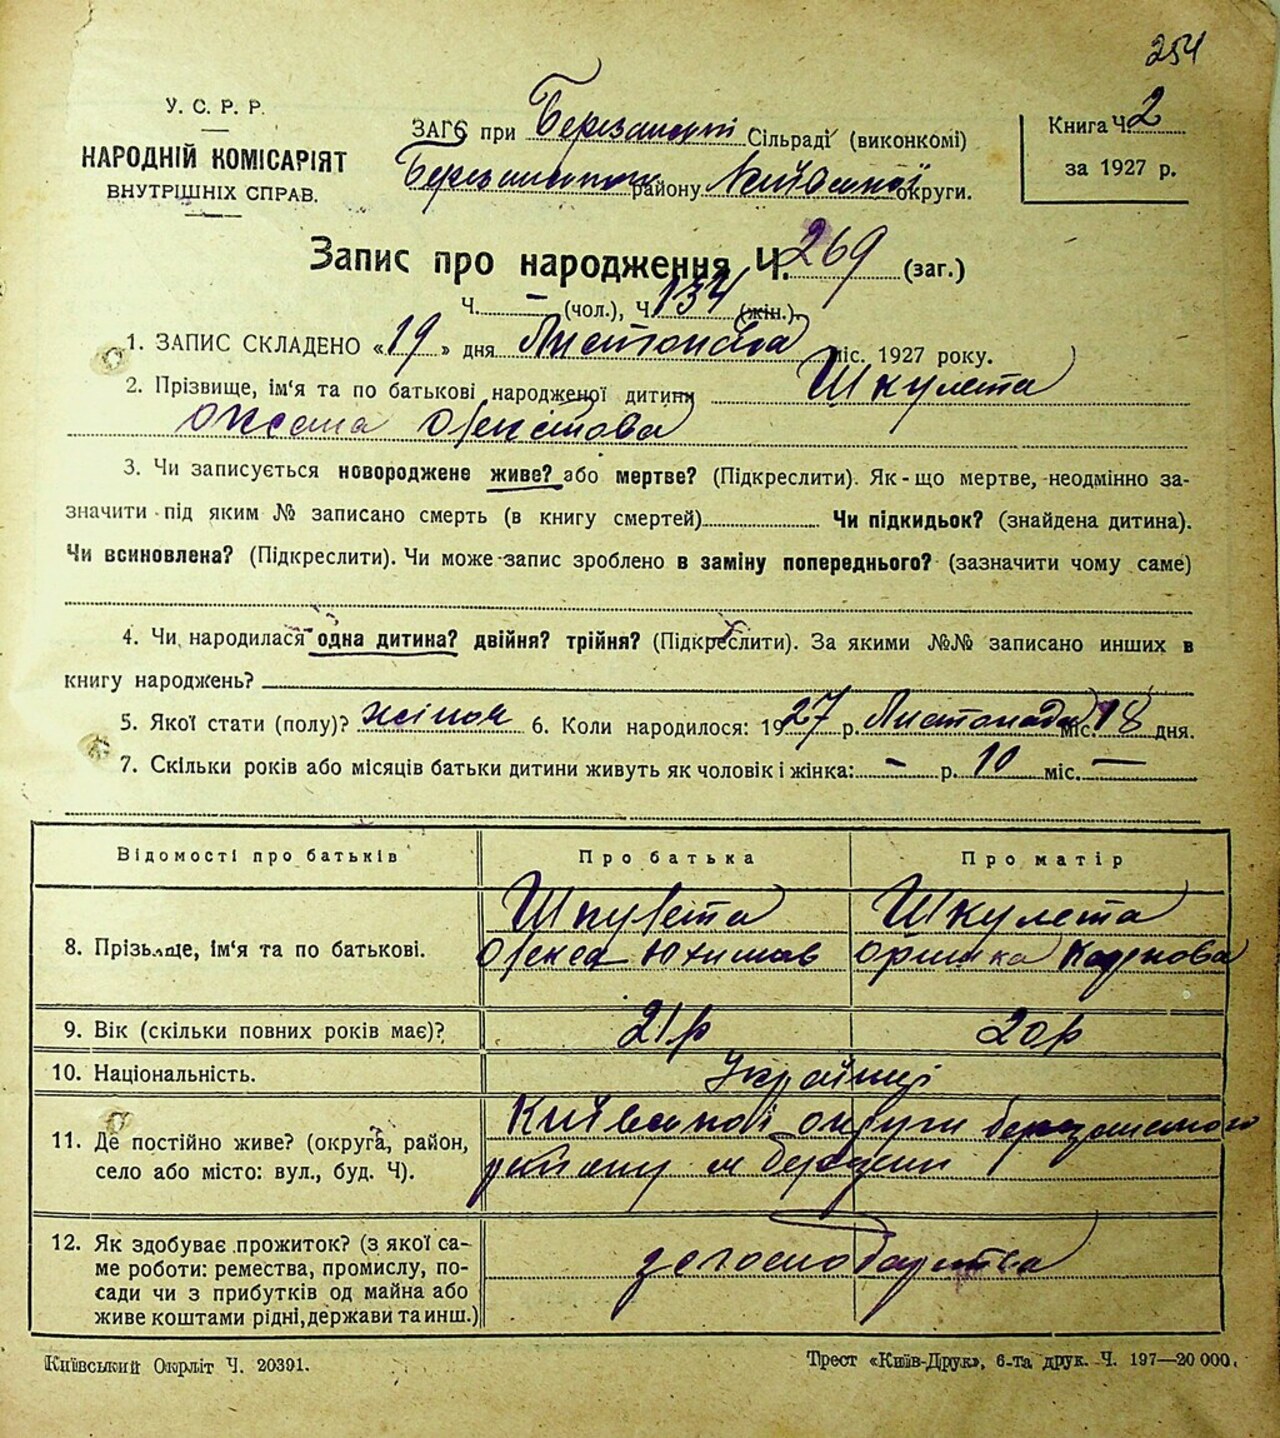 254
У. С. Р. Р.
НАРОДНІЙ КОМІСАРІЯТ
ВНУТРІШНІХ СПРАВ.
ЗАГС при Березанській Сільраді (виконкомі)
району Київської округи.
Книга Ч. 2
за 1927 р.
Запис про народження Ч. 269 (заг.)
Ч. – (чол.), Ч. 134 (жін.).
1. ЗАПИС СКЛАДЕНО «19» дня Листопада міс. 1927 року.
2. Прізвище, ім‘я та по батькові народженої дитини Шкулета
Оксана Олексієва
3. Чи записується новороджене живе? або мертве? (Підкреслити). Як-що мертве, неодмінно за-
значити під яким № записано смерть (в книгу смертей) Чи підкидьок? (знайдена дитина).
Чи всиновлена? (Підкреслити). Чи може запис зроблено в заміну попереднього? (зазначити чому саме)
4. Чи народилася одна дитина? двійня? трійня? (Підкреслити). За якими №№ записано инших в
книгу народжень?
5. Якої стати (полу)? жіноч 6. Коли народилося: 1927 р. Листопада міс. 18 дня.
7. Скільки років або місяців батьки дитини живуть як чоловік і жінка: – р. 10 міс. –
Відомості про батьків Про батька Про матір
Шкулета Шкулета
8. Прізвище, ім‘я та по батькові. Олекса Юхимов Оришка
9. Вік (скільки повних років має)? 21 р 20 р
10. Національність. Українці
Київської округи березанського
11. Де постійно живе? (округа, район,
село або місто: вул., буд. Ч). району м березань
12. Як здобуває прожиток? (з якої са-
ме роботи: ремества, промислу, по-
сади чи з прибутків од майна або
живе коштами рідні, держави та инш.)
господарства
Київський Окрліт Ч. 20391.
Трест «Київ-Друк», 6-та друк. Ч. 197—20 000.